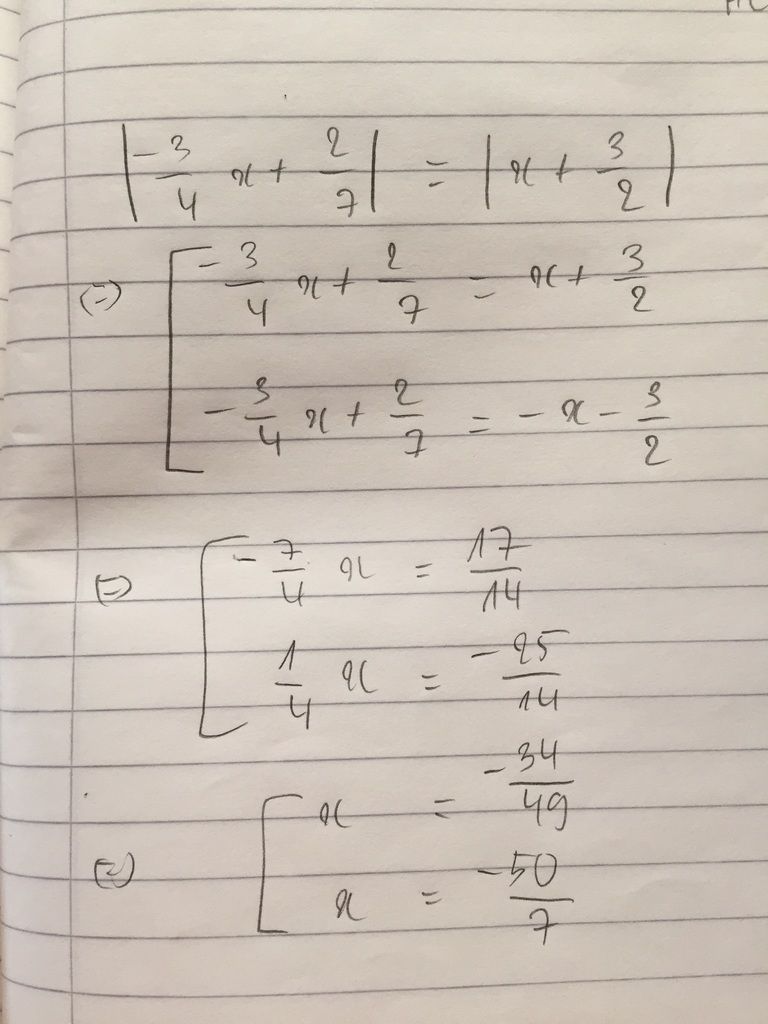 |-3/4 x + 2/7| = |x + 3/2|
(=) [ -3/4 x + 2/7 = x + 3/2
-3/4 x + 2/7 = -x - 3/2
(=) [ -7/4 x = 17/14
1/4 x = -25/14
(=) [ x = -34/49
x = -50/7